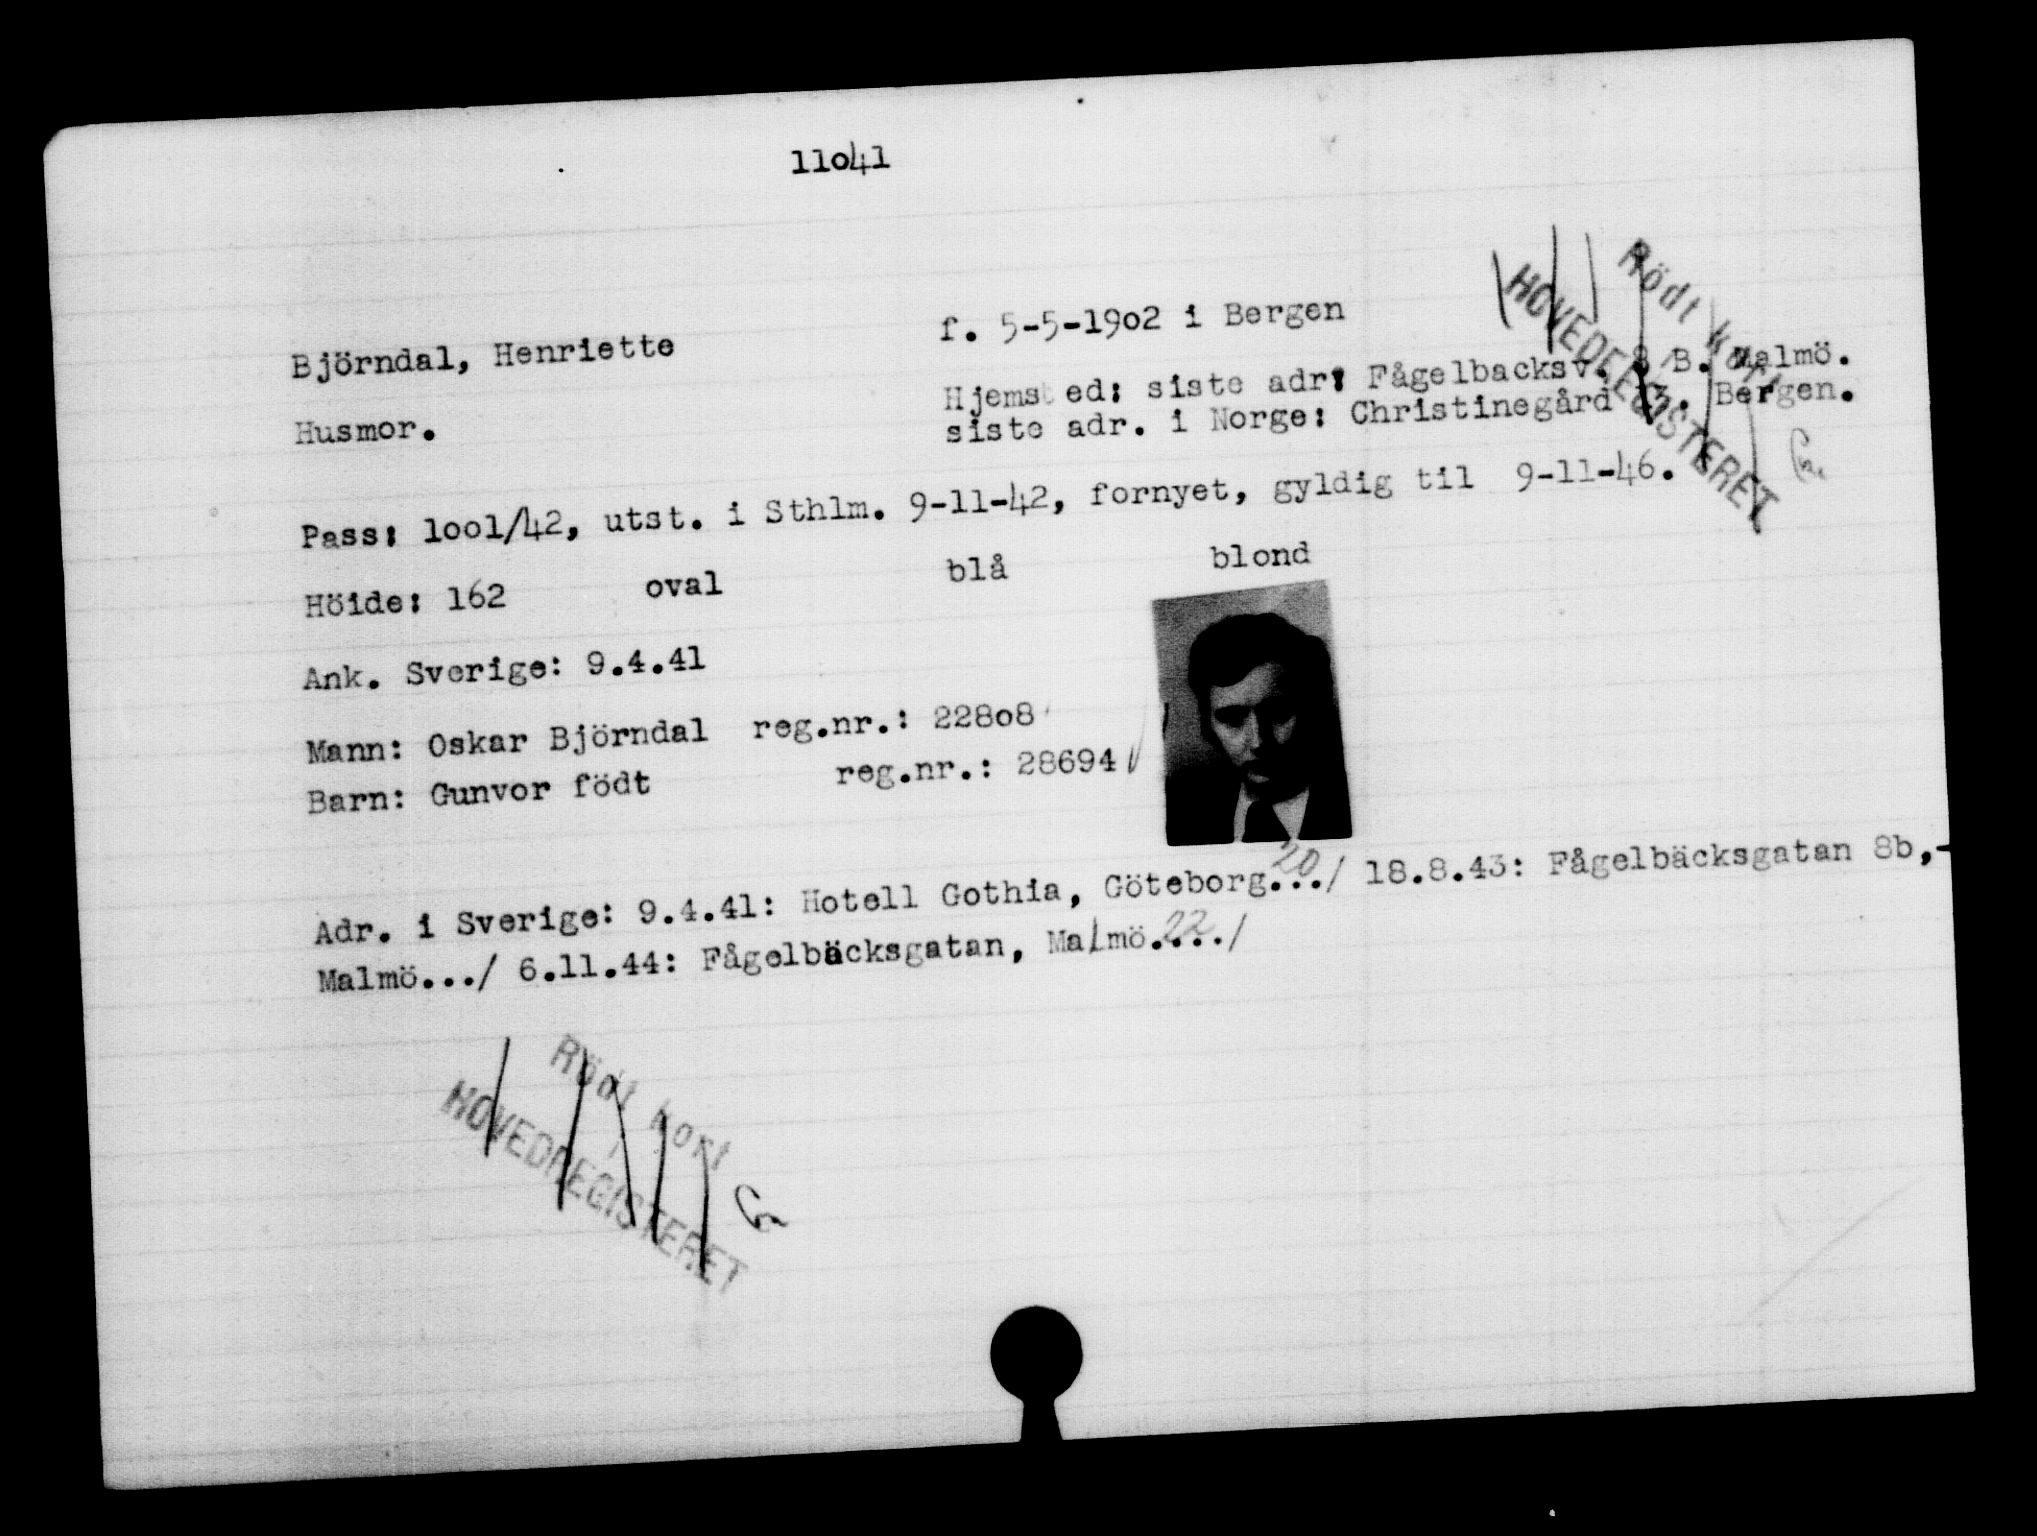 11o41
Björndal, Henriette
f. 5-5-19o2 i Bergen
Husmor.
Hjemsted: siste adr: Fågelbacksv. 8 B. Malmö.
siste adr. i Norge: Christinegård 3. Bergen.
Rödt kort
HOVEDREGISTERET
Pass: 1oo1/42, utst. i Sthlm. 9-11-42, fornyet, gyldig til 9-11-46.
Höide: 162 oval blå blond
Ank. Sverige: 9.4.41
Mann: Oskar Björndal reg.nr.: 228o8
Barn: Gunvor födt reg.nr.: 28694
Adr. i Sverige: 9.4.41: Hotell Gothia, Göteborg.20../ 18.8.43: Fågelbäcksgatan 8b,-
Malmö.../ 6.11.44: Fågelbäcksgatan, Malmö.22../
Rödt kort
HOVEDREGISTERET